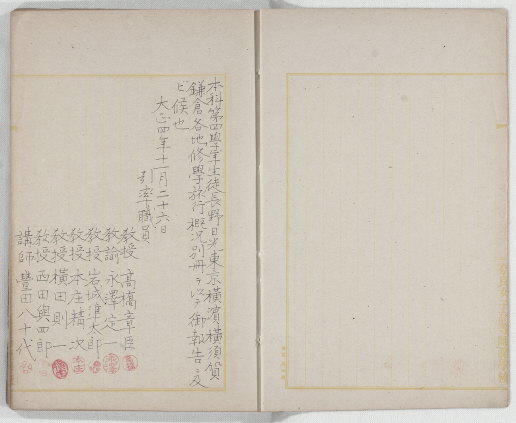 本科第四學年生徒長野日光東京橫濱橫須賀
鎌倉各地修學旅行概況別冊ヲ以テ御報告ニ及
ビ候也
大正四年十一月二十六日
引率職員
教授 高橋章臣
教諭 永澤定一
教授 岩城準太郎
教授 本庄精次
教授 橫田則一
教授 西田與四郎
講師 豐田八十代